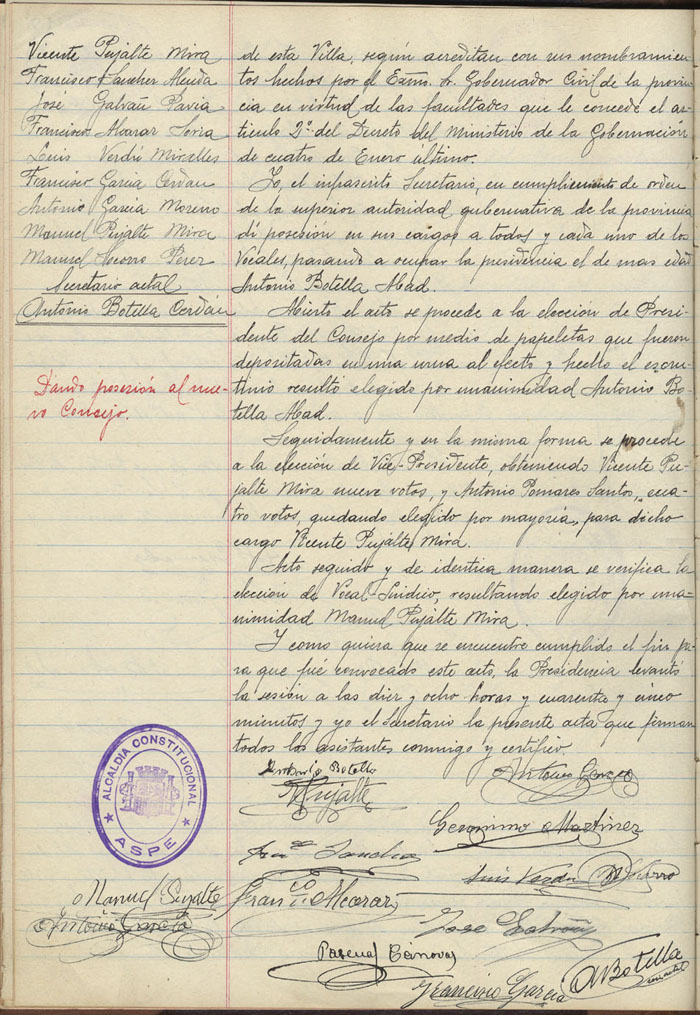 Vicente Pujalte Mira
Francisco Sancher Alcida
José Galvañ Pavia
Francisco Alcarar Soria
Luis Verdú Miralles
Francisco Garcia Cerdán
Antonio Garcia Moreno
Manuel Pujalte Mira
Manuel Socorro Perez
Secretario actal
Antonio Botella Cerdán
Dando posesión al nue-
vo Consejo.
de esta Villa, según acreditan con sus nombramien-
tos hechos por el Exmo. Sr. Gobernador Civil de la provin-
cia en virtud de las facultades que le concede el ar-
tículo 2º del Decreto del Ministerio de la Gobernación
de cuatro de Enero último.
Yo, el infrascrito Secretario, en cumplimiento de orden
de la superior autoridad gubernativa de la provincia
dí posesión en sus cargos a todos y cada uno de los
Vocales, pasando a ocupar la presidencia el de mas edad
Antonio Botella Abad.
Abierto el acto se procede a la elección de Presi-
dente del Consejo por medio de papeletas que fueron
depositadas en una urna al efecto y hecho el escru-
tinio resultó elegido por unanimidad Antonio Bo-
tella Abad.
Seguidamente y en la misma forma se procede
a la elección de Vice-Presidente, obteniendo Vicente Pu-
jalte Mira nueve votos, y Antonio Pomares Santos, cua-
tro votos, quedando elegido por mayoría, para dicho
cargo Vicente Pujalte Mira.
Acto seguido y de identica manera se verifica la
elección de Vocal-Síndico, resultando elegido por una-
nimidad Manuel Pujalte Mira.
Y como quiera que se encuentre cumplido el fin pa-
ra que fué convocado este acto, la Presidencia levantó
la sesión a las diez y ocho horas y cuarenta y cinco
minutos y yo el Secretario la presente acta que firman
todos los asistentes conmigo y certifico.
ALCALDIA CONSTITUCIONAL
ASPE
Antonio Botella
Antonio Garcia
V Pujalte
Geronimo Martinez
Franco Sanche
Luis Verdú M Socorro
Manuel Pujalte
Franco Alcarar
Antonio García
Jose Galvañ
Pascual Cánovas
ABotella
Francisco García